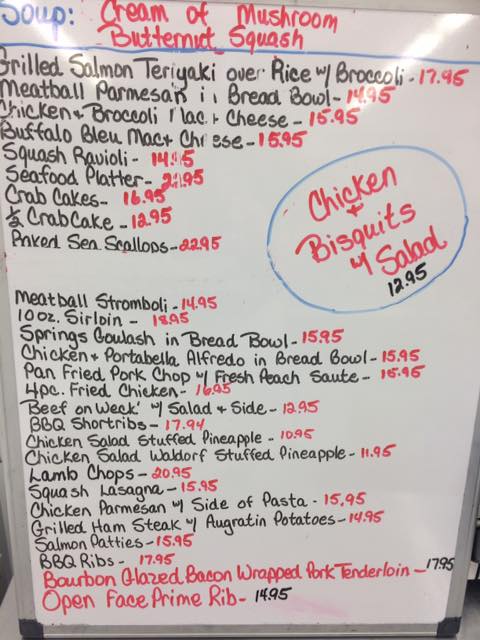 Soup: Cream of Mushroom
Butternut Squash
Grilled Salmon Teriyaki over Rice w/ Broccoli - 17.95
Meatball Parmesan in Bread Bowl - 14.95
Chicken + Broccoli Mac + Cheese - 15.95
Buffalo Bleu Mac + Cheese - 15.95
Squash Ravioli - 14.95
Seafood Platter - 22.95
Crab Cakes - 16.95
½ Crab Cake - 12.95
Baked Sea Scallops - 22.95
Chicken
+
Bisquits
w/ Salad
12.95
Meatball Stromboli - 14.95
10 oz. Sirloin - 18.95
Springs Goulash in Bread Bowl - 15.95
Chicken + Portabella Alfredo in Bread Bowl - 15.95
Pan Fried Pork Chop w/ Fresh Peach Saute - 15.95
4pc. Fried Chicken - 16.95
Beef on Weck' w/ Salad + Side - 12.95
BBQ Shortribs - 17.94
Chicken Salad Stuffed Pineapple - 10.95
Chicken Salad Waldorf Stuffed Pineapple - 11.95
Lamb Chops - 20.95
Squash Lasagna - 15.95
Chicken Parmesan w/ Side of Pasta - 15.95
Grilled Ham Steak w/ Augratin Potatoes - 14.95
Salmon Patties - 15.95
BBQ Ribs - 17.95
Bourbon Glazed Bacon Wrapped Pork Tenderloin - 17.95
Open Face Prime Rib - 14.95